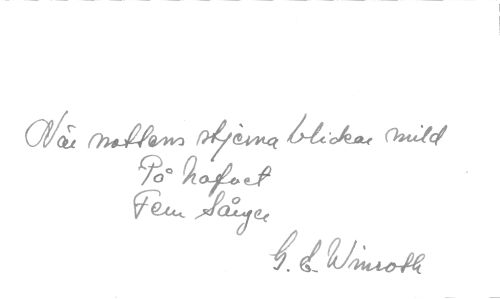 När nattens stjerna blickar mild
På hafvet
Fem Sånger
G. E. Winroth